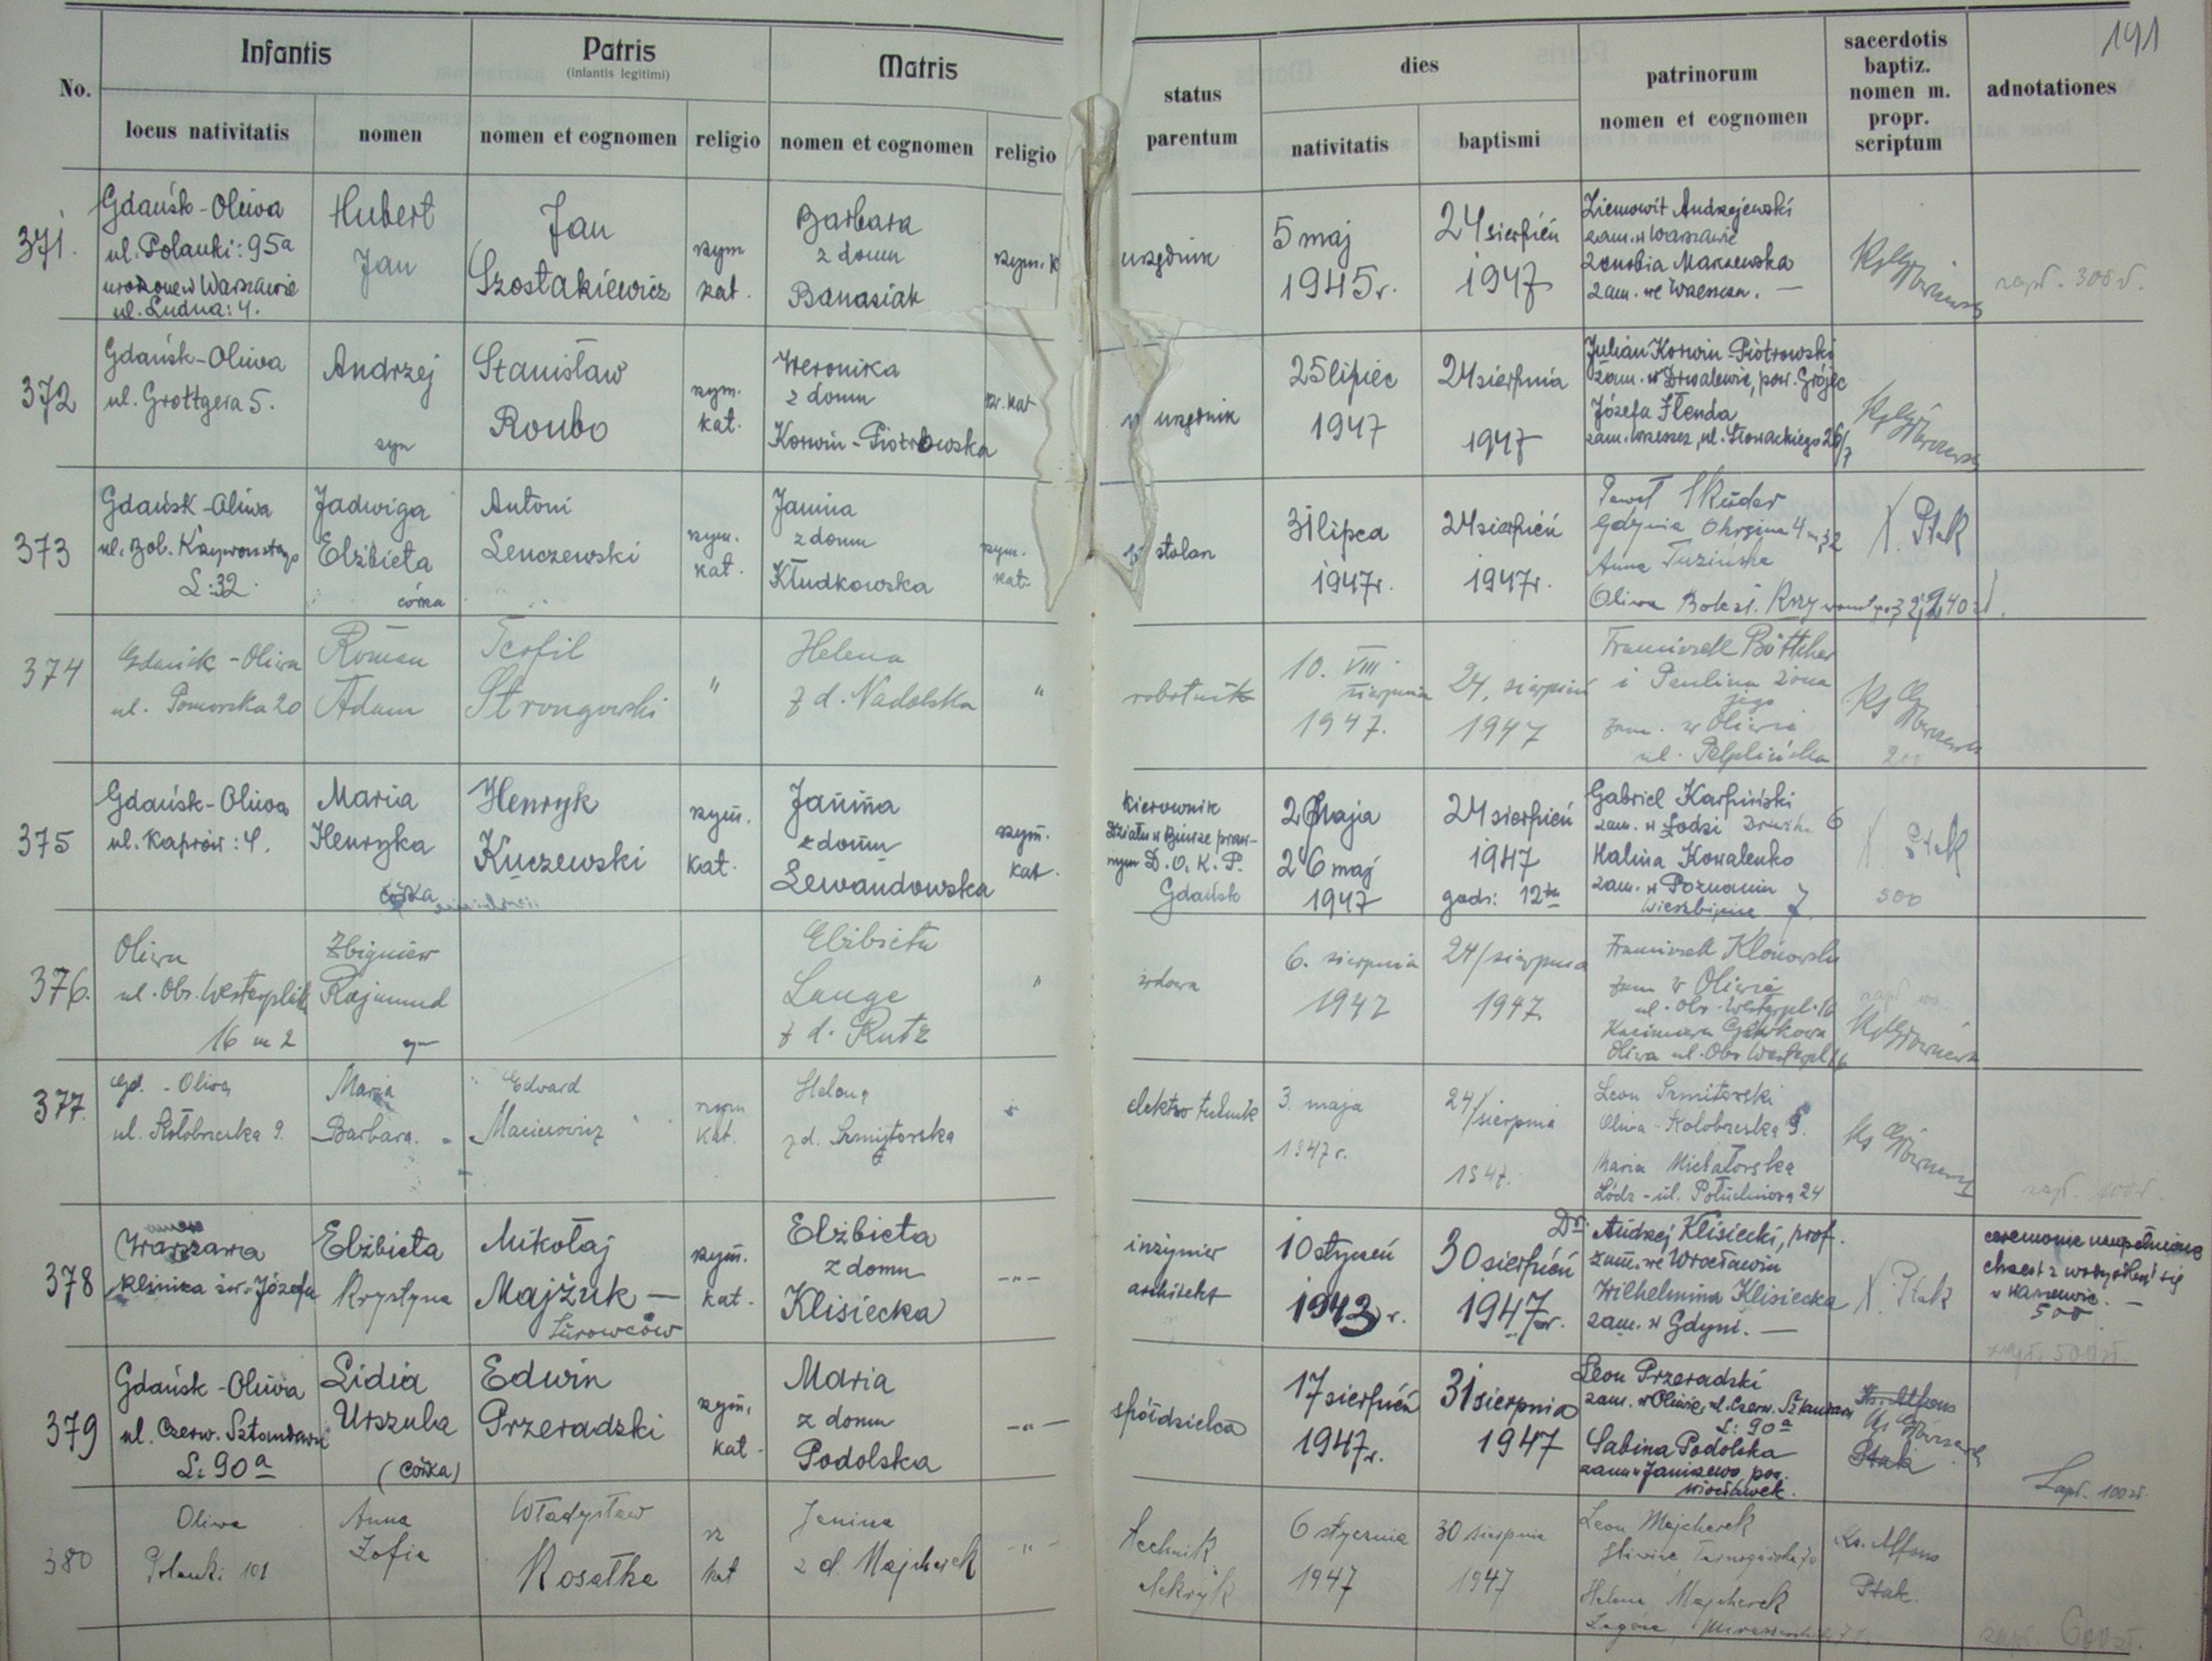 191
No.
Infantis
locus nativitatis
nomen
Patris
(infantis legitimi)
nomen et cognomen
religio
Matris
nomen et cognomen
religio
status
parentum
dies
nativitatis
baptismi
patrinorum
nomen et cognomen
sacerdotis
baptiz.
nomen m.
propr.
scriptum
adnotationes
371.
Gdańsk-Oliwa
ul. Polanki: 95a
urodzone w Warszawie
ul. Ludna: 4.
Hubert
Jan
Jan
Szostakiewicz
rzym
kat.
Barbara
z domu
Banasiak
rzym. k
urzędnik
5 maj
1945r.
24 sierpień
1947
Ziemowit Andrzejewski
zam. w Warszawie
Zenobia Marszewska
zam. we Wrzeszcz. —
zapł. 300 zł.
372
Gdańsk-Oliwa
ul. Grottgera 5.
Andrzej
syn
Stanisław
Roubo
rzym.
kat.
Weronika
z domu
Korwin-Piotrowska
rz. kat
urzędnik
25 lipiec
1947
24 sierpnia
1947
Julian Korwin-Piotrowski
zam. w Drwalewie, pow. Grójec
Józefa Flenda
zam. Wrzeszcz, ul. Słowackiego 26/7
373
Gdańsk-Oliwa
ul. Bol. Krzywoustego
L: 32.
Jadwiga
Elżbieta
córka
Antoni
Lenczewski
rzym.
kat.
Janina
z domu
Kłudkowska
rzym.
kat.
stolarz
31 lipca
1947r.
24 sierpień
1947r.
Paweł Skuder
Gdynia
Anna Tuzińska
Oliwa Bolesł.
X. Ptak
374
Gdańsk-Oliwa
ul. Pomorska 20
Roman
Adam
Teofil
Strongowski
"
Helena
z d. Nadolska
"
robotnik
10. VIII
sierpnia
1947.
24. sierpień
1947
Franciszek Böttcher
i Paulina żona
jego
zam. w Oliwie
ul. Pelplińska
200
375
Gdańsk-Oliwa
ul. Kaprów: 4.
Maria
Henryka
córka
Henryk
Kuczewski
rzym.
kat.
Janina
z domu
Lewandowska
rzym.
kat.
kierownik
działu w Biurze praw-
nym D. O. K. P.
Gdańsk
26 maj
1947
24 sierpień
1947
godz: 12ta
Gabriel Karpiński
zam. w Łodzi
6
Halina Kowalenko
zam. w Poznaniu
7.
X Ptak
500
376.
Oliwa
ul. Obr. Westerplatte
16 m 2
Zbigniew
Rajmund
syn
Elżbieta
Lange
z d. Rutz
"
wdowa
6. sierpnia
1947
24/sierpnia
1947.
Franciszek
zam w Oliwie
ul. Obr. Westerpl. 16
Kazimiera
Oliwa ul. Obr Westerpl 16
377.
Gd. - Oliwa
ul. Kołobrzeska 9.
Maria
Barbara.
Edward
Maciesowicz
rzym
kat.
Helena
z d. Szmytorska
elektrotechnik
3. maja
1947 r.
24/sierpnia
1947.
Leon
Oliwa - Kołobrzeska 9.
Maria Michałorska
Łódź - ul. Południowa 24
zapł. 100 zł.
378
Warszawa
klinika św. Józefa
Elżbieta
Krystyna
Mikołaj
Majżuk —
Żurowców
rzym.
kat.
Elżbieta
z domu
Klisiecka
-„-
inżynier
architekt
10 styczeń
1943 r.
30 sierpień
1947 r.
Dr. Andrzej Klisiecki, prof.
zam. we Wrocławiu
Wilhelmina Klisiecka
zam. w Gdyni. —
X. Ptak
ceremonie uzupełnione
chrzest z wody odbył się
w Warszawie. —
500
zapł. 500 zł
379
Gdańsk-Oliwa
ul. Czerw. Sztandaru
L: 90a
Lidia
Urszula
(córka)
Edwin
Przeradzki
rzym.
kat.
Maria
z domu
Podolska
-„-
spółdzielca
17 sierpień
1947r.
31 sierpnia
1947
Leon Przeradzki
zam. w Oliwie, ul. Czerw. Sztandaru
L: 90a
Sabina Podolska
zam. w Janiszewo, pow.
Włocławek.
Ks. Alfons
Ptak
Zapł. 100 zł.
380
Oliwa
Polanki 101
Anna
Zofia
Władysław
Kosatka
rz
kat
Janina
z d. Majcherek
-„-
technik
elektryk
6 stycznia
1947
30 sierpnia
1947
Leon Majcherek
Gliwice Tarnogórska 70
Helena Majcherek
Ks. Alfons
Ptak.
zapł. 600 zł.